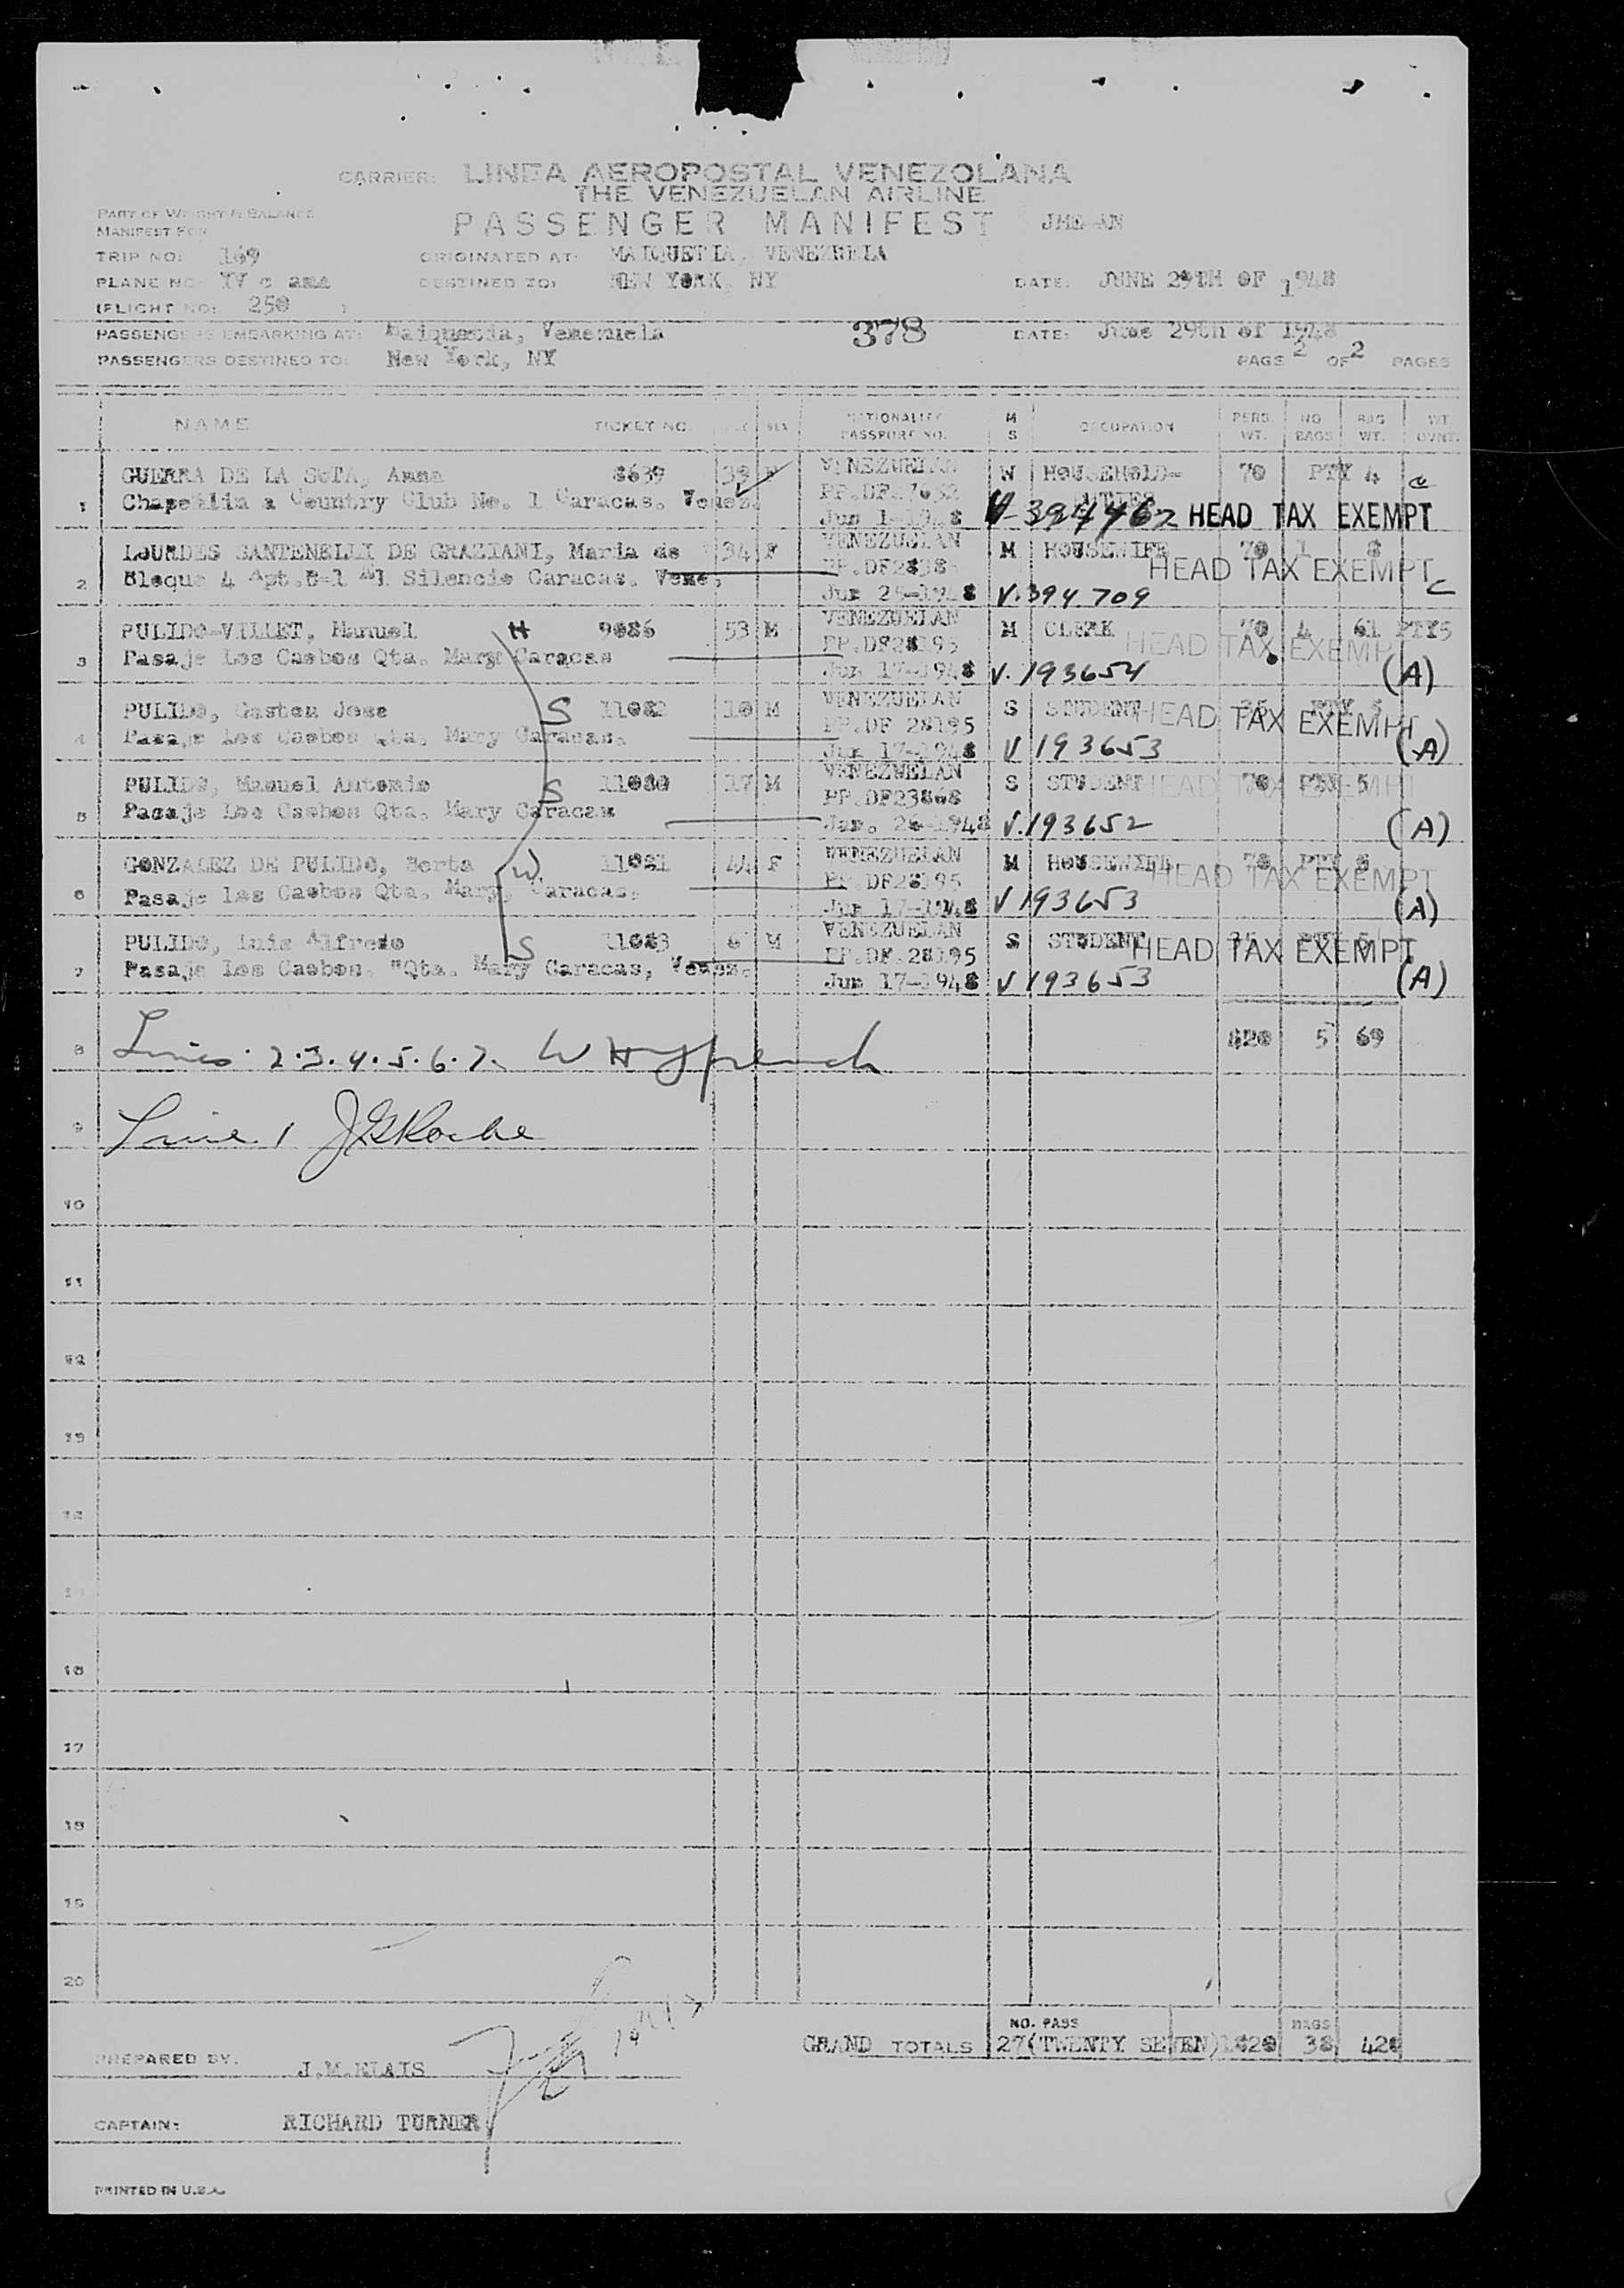 CARRIER: LINEA AEROPOSTAL VENEZOLANA
THE VENEZUELAN AIRLINE
PART OF WEIGHT & BALANCE
MANIFEST FOR
PASSENGER MANIFEST JME-AN
TRIP NO: 169 ORIGINATED AT: MAIQUETIA, VENEZUELA
PLANE NO: DESTINED TO: NEW YORK, NY DATE: JUNE 29TH OF 1948
(FLIGHT NO: 250 )
PASSENGERS EMBARKING AT: Maiquetia, Venezuela 378 DATE: June 29th of 1948
PASSENGERS DESTINED TO: New York, NY PAGE 2 OF 2 PAGES
NAME TICKET NO. SEX NATIONALITY PASSPORT NO. M S OCCUPATION PERS. WT. NO BAGS BAG WT. WT. OVNT.
1 GUERRA DE LA SOTA, Anna 8639 39 F VENEZUELAN W HOUSEHOLD- 70 PTY 4 c
Chapellin a Country Club No. 1 Caracas. Venez. DUTIES
Jun 1-1948 V-394462 HEAD TAX EXEMPT
2 LOURDES SANTENELLI DE GRAZIANI, Maria de 34 F VENEZUELAN M HOUSEWIFE 70 1 8
Bloque 4 Apt.B-1 El Silencio Caracas. Vene, HEAD TAX EXEMPT C
Jun 25-1948 V.394709
3 PULIDO-VILLET, Manuel H 9086 53 M VENEZUELAN M CLERK 70 4 61 PTY5
Pasaje Los Caobos Qta. Mary Caracas PP.DF28195 HEAD TAX EXEMPT
Jun 17-1948 V.193654 (A)
4 PULIDO, Gaston Jose S 11082 10 M VENEZUELAN S STUDENT 35 PTY 5
Pasaje Los Caobos Qta. Mary Caracas. PP.DF 28195 HEAD TAX EXEMPT
Jun 17-1948 V 193653 (A)
5 PULIDO, Manuel Antonio S 11080 17 M VENEZUELAN S STUDENT 70 PTY 5
Pasaje Los Caobos Qta. Mary Caracas PP.DF23868 HEAD TAX EXEMPT
Jan. 26-1948 V.193652 (A)
6 GONZALEZ DE PULIDO, Berta W 11081 44 F VENEZUELAN M HOUSEWIFE 70 PTY 8
Pasaje las Caobos Qta. Mary, Caracas. PP.DF28195 HEAD TAX EXEMPT
Jun 17-1948 V 193653 (A)
7 PULIDO, Luis Alfredo S 11083 6 M VENEZUELAN S STUDENT 35 PTY 5
Pasaje Los Caobos. "Qta. Mary Caracas, Venez. PP.DF.28195 HEAD TAX EXEMPT
Jun 17-1948 V 193653 (A)
8 Lines 2.3.4.5.6.7. 420 5 69
9 Line 1 JGRoche
10
11
12
13
14
15
16
17
18
19
20
NO. PASS BAGS
GRAND TOTALS 27(TWENTY SEVEN) 38
PREPARED BY: J.M.ELAIS
CAPTAIN: RICHARD TURNER
PRINTED IN U.S.A.